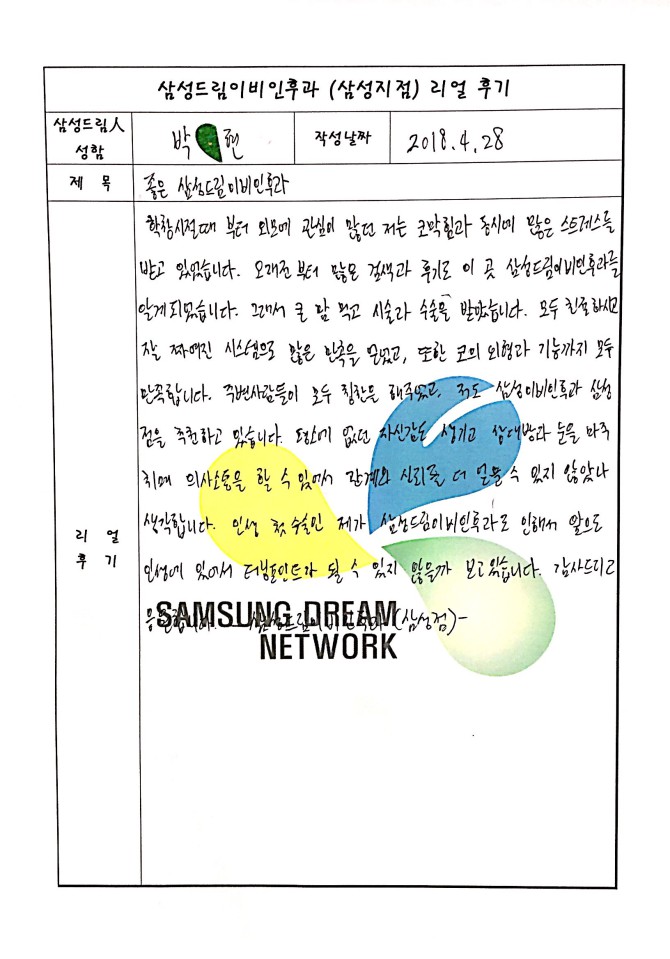 삼성드림이비인후과 (삼성지점) 리얼 후기
삼성드림人 성함
박 현
작성날짜
2018.4.28
제 목
좋은 삼성드림이비인후과
리 얼
후 기
학창시절때 부터 외모에 관심이 많던 저는 코막힘과 동시에 많은 스트레스를
받고 있었습니다. 오래전부터 많은 검색과 후기로 이 곳 삼성드림이비인후과를
알게되었습니다. 그래서 큰 맘 먹고 시술과 수술을 받았습니다. 모두 친절하시고
잘 짜여진 시스템으로 많은 만족을 얻었고, 또한 코의 외형과 기능까지 모두
만족합니다. 주변사람들이 모두 칭찬을 해주었고, 저도 삼성이비인후과 삼성
점을 추천하고 있습니다. 평소에 없던 자신감도 생기고 상대방과 눈을 마주
치며 의사소통을 할 수 있어서 관계와 신뢰를 더 얻을수 있지 않았나
생각합니다. 인생 첫 수술인 제가 삼성드림이비인후과로 인해서 앞으로
인생에 있어서 터닝포인트가 될 수 있지 않을까 보고있습니다. 감사드리고
응원합니다. - 삼성드림이비인후과 (삼성점)-
SAMSUNG DREAM
NETWORK